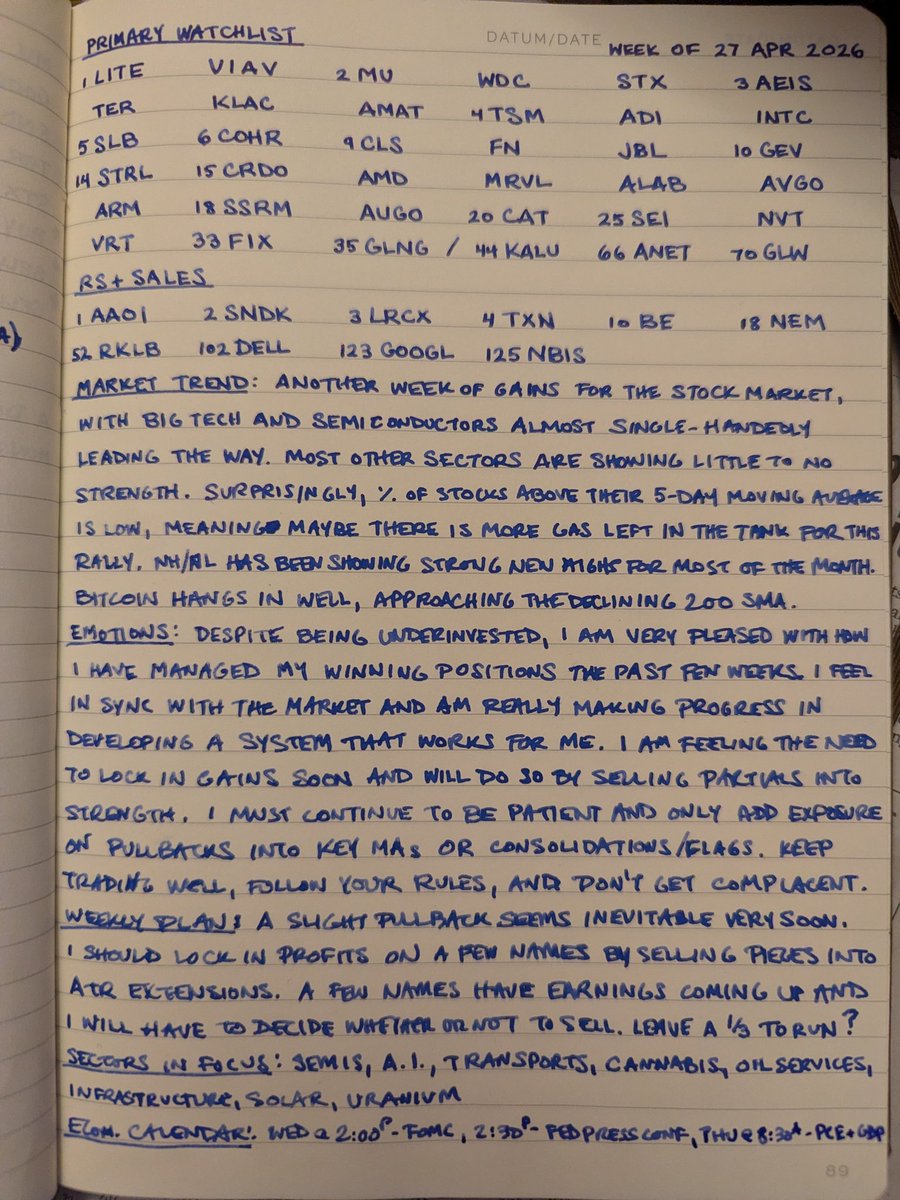 DATUM/DATE
PRIMARY WATCHLIST WEEK OF 27 APR 2026
1 LITE VIAV 2 MU WDC STX 3 AEIS
TER KLAC AMAT 4 TSM ADI INTC
5 SLB 6 COHR 9 CLS FN JBL 10 GEV
14 STRL 15 CRDO AMD MRVL ALAB AVGO
ARM 18 SSRM AUGO 20 CAT 25 SEI NVT
VRT 33 FIX 35 GLNG / 44 KALU 66 ANET 70 GLW
RS + SALES
1 AAOI 2 SNDK 3 LRCX 4 TXN 10 BE 18 NEM
52 RKLB 102 DELL 123 GOOGL 125 NBIS
MARKET TREND: ANOTHER WEEK OF GAINS FOR THE STOCK MARKET,
WITH BIG TECH AND SEMICONDUCTORS ALMOST SINGLE-HANDEDLY
LEADING THE WAY. MOST OTHER SECTORS ARE SHOWING LITTLE TO NO
STRENGTH. SURPRISINGLY, % OF STOCKS ABOVE THEIR 5-DAY MOVING AVERAGE
IS LOW, MEANING MAYBE THERE IS MORE GAS LEFT IN THE TANK FOR THIS
RALLY. NH/NL HAS BEEN SHOWING STRONG NEW HIGHS FOR MOST OF THE MONTH.
BITCOIN HANGS IN WELL, APPROACHING THE DECLINING 200 SMA.
EMOTIONS: DESPITE BEING UNDERINVESTED, I AM VERY PLEASED WITH HOW
I HAVE MANAGED MY WINNING POSITIONS THE PAST FEW WEEKS. I FEEL
IN SYNC WITH THE MARKET AND AM REALLY MAKING PROGRESS IN
DEVELOPING A SYSTEM THAT WORKS FOR ME. I AM FEELING THE NEED
TO LOCK IN GAINS SOON AND WILL DO SO BY SELLING PARTIALS INTO
STRENGTH. I MUST CONTINUE TO BE PATIENT AND ONLY ADD EXPOSURE
ON PULLBACKS INTO KEY MAs OR CONSOLIDATIONS/FLAGS. KEEP
TRADING WELL, FOLLOW YOUR RULES, AND DON'T GET COMPLACENT.
WEEKLY PLAN: A SLIGHT PULLBACK SEEMS INEVITABLE VERY SOON.
I SHOULD LOCK IN PROFITS ON A FEW NAMES BY SELLING PIECES INTO
ATR EXTENSIONS. A FEW NAMES HAVE EARNINGS COMING UP AND
I WILL HAVE TO DECIDE WHETHER OR NOT TO SELL. LEAVE A 1/3 TO RUN?
SECTORS IN FOCUS: SEMIS, A.I., TRANSPORTS, CANNABIS, OIL SERVICES,
INFRASTRUCTURE, SOLAR, URANIUM
ECON. CALENDAR: WED @ 2:00P - FOMC, 2:30P - FED PRESS CONF, THU @ 8:30A - PCE + GDP
89